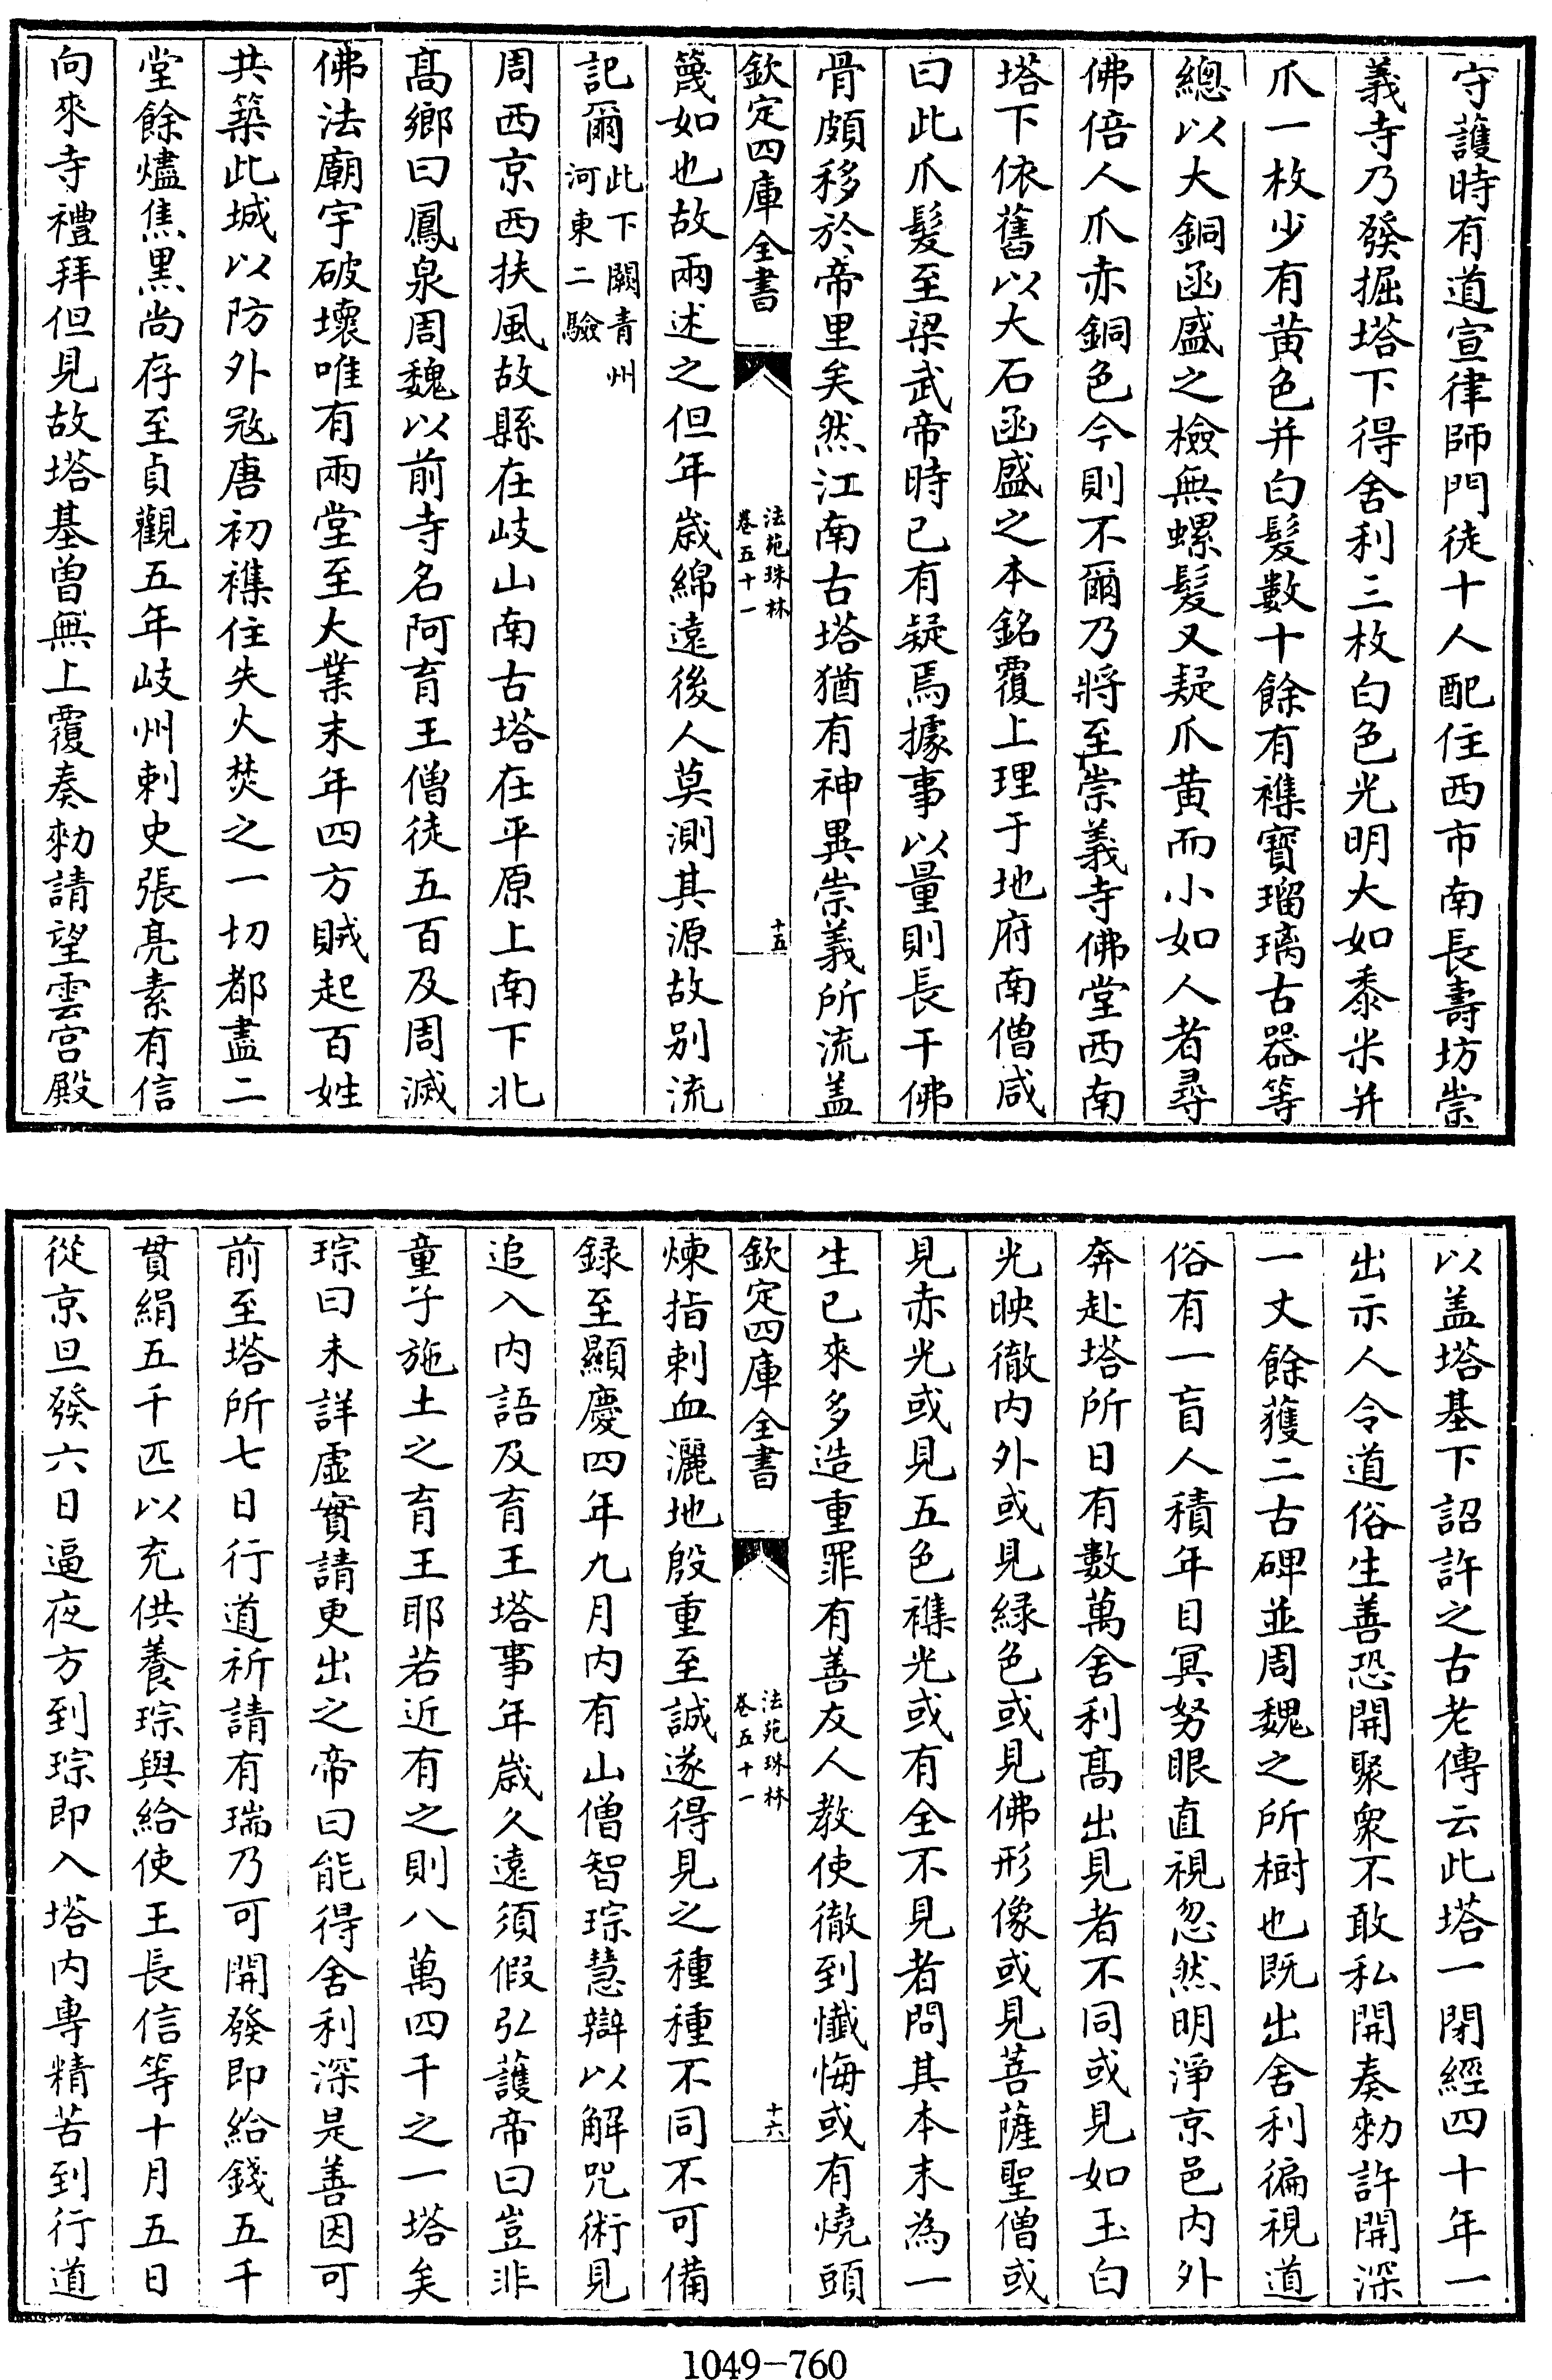 守護時有道宣律師門徒十人配住西市南長壽坊崇
義寺乃發掘塔下得舍利三枚白色光明大如黍米并
爪一枚少有黄色并白髮數十餘有襍寳瑠璃古器等
總以大銅函盛之檢無螺髮又疑爪黄而小如人者尋
佛倍人爪赤銅色今則不爾乃將至崇義寺佛堂西南
塔下依舊以大石函盛之本銘覆上理于地府南僧咸
曰此爪髮至梁武帝時已有疑焉據事以量則長干佛
骨頗移於帝里矣然江南古塔猶有神異崇義所流盖
欽定四庫全書
法苑珠林
卷五十一
十五
篾如也故兩述之但年嵗綿遠後人莫測其源故别流
記爾此下闕青州
河東二驗
周西京西扶風故縣在岐山南古塔在平原上南下北
髙鄉曰鳳泉周魏以前寺名阿育王僧徒五百及周滅
佛法廟宇破壞唯有兩堂至大業末年四方賊起百姓
共築此城以防外㓂唐初襍住失火焚之一切都盡二
堂餘燼焦黒尚存至貞觀五年岐州刺史張亮素有信
向來寺禮拜但見故塔基曽無上覆奏勑請望雲宫殿
以盖塔基下詔許之古老傳云此塔一閉經四十年一
出示人令道俗生善恐開聚衆不敢私開奏勑許開深
一丈餘獲二古碑並周魏之所樹也既出舍利徧視道
俗有一盲人積年目冥努眼直視忽然明淨京邑内外
奔赴塔所日有數萬舍利髙出見者不同或見如玉白
光映徹内外或見緑色或見佛形像或見菩薩聖僧或
見赤光或見五色襍光或有全不見者問其本末為一
生已來多造重罪有善友人教使徹到懴悔或有燒頭
欽定四庫全書
法苑珠林
卷五十一
十六
煉指刺血灑地殷重至誠遂得見之種種不同不可備
録至顯慶四年九月内有山僧智琮慧辯以解咒術見
追入内語及育王塔事年嵗久遠須假弘護帝曰豈非
童子施土之育王耶若近有之則八萬四千之一塔矣
琮曰未詳虛實請更出之帝曰能得舍利深是善因可
前至塔所七日行道祈請有瑞乃可開發即給錢五千
貫絹五千匹以充供養琮與給使王長信等十月五日
從京旦發六日逼夜方到琮即入塔内專精苦到行道
1049-760